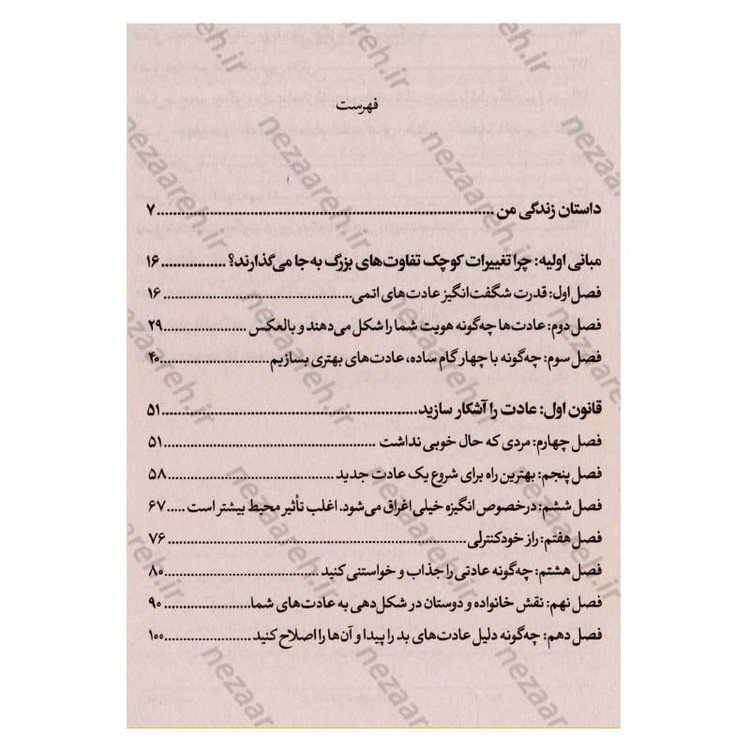 فهرست
داستان زندگی من ................ ۷
مبانی اولیه: چرا تغییرات کوچک تفاوت‌های بزرگ به‌جا می‌گذارند؟ ................ ۱۶
فصل اول: قدرت شگفت‌انگیز عادت‌های اتمی ................ ۱۶
فصل دوم: عادت‌ها چه‌گونه هویت شما را شکل می‌دهند و بالعکس ................ ۲۹
فصل سوم: چه‌گونه با چهار گام ساده، عادت‌های بهتری بسازیم ................ ۴۰
قانون اول: عادت را آشکار سازید ................ ۵۱
فصل چهارم: مردی که حال خوبی نداشت ................ ۵۱
فصل پنجم: بهترین راه برای شروع یک عادت جدید ................ ۵۸
فصل ششم: درخصوص انگیزه خیلی اغراق می‌شود. اغلب تأثیر محیط بیشتر است ..... ۶۷
فصل هفتم: راز خودکنترلی ................ ۷۶
فصل هشتم: چه‌گونه عادتی را جذاب و خواستنی کنید ................ ۸۰
فصل نهم: نقش خانواده و دوستان در شکل‌دهی به عادت‌های شما ................ ۹۰
فصل دهم: چه‌گونه دلیل عادت‌های بد را پیدا و آن‌ها را اصلاح کنید ................ ۱۰۰
nezaareh.ir